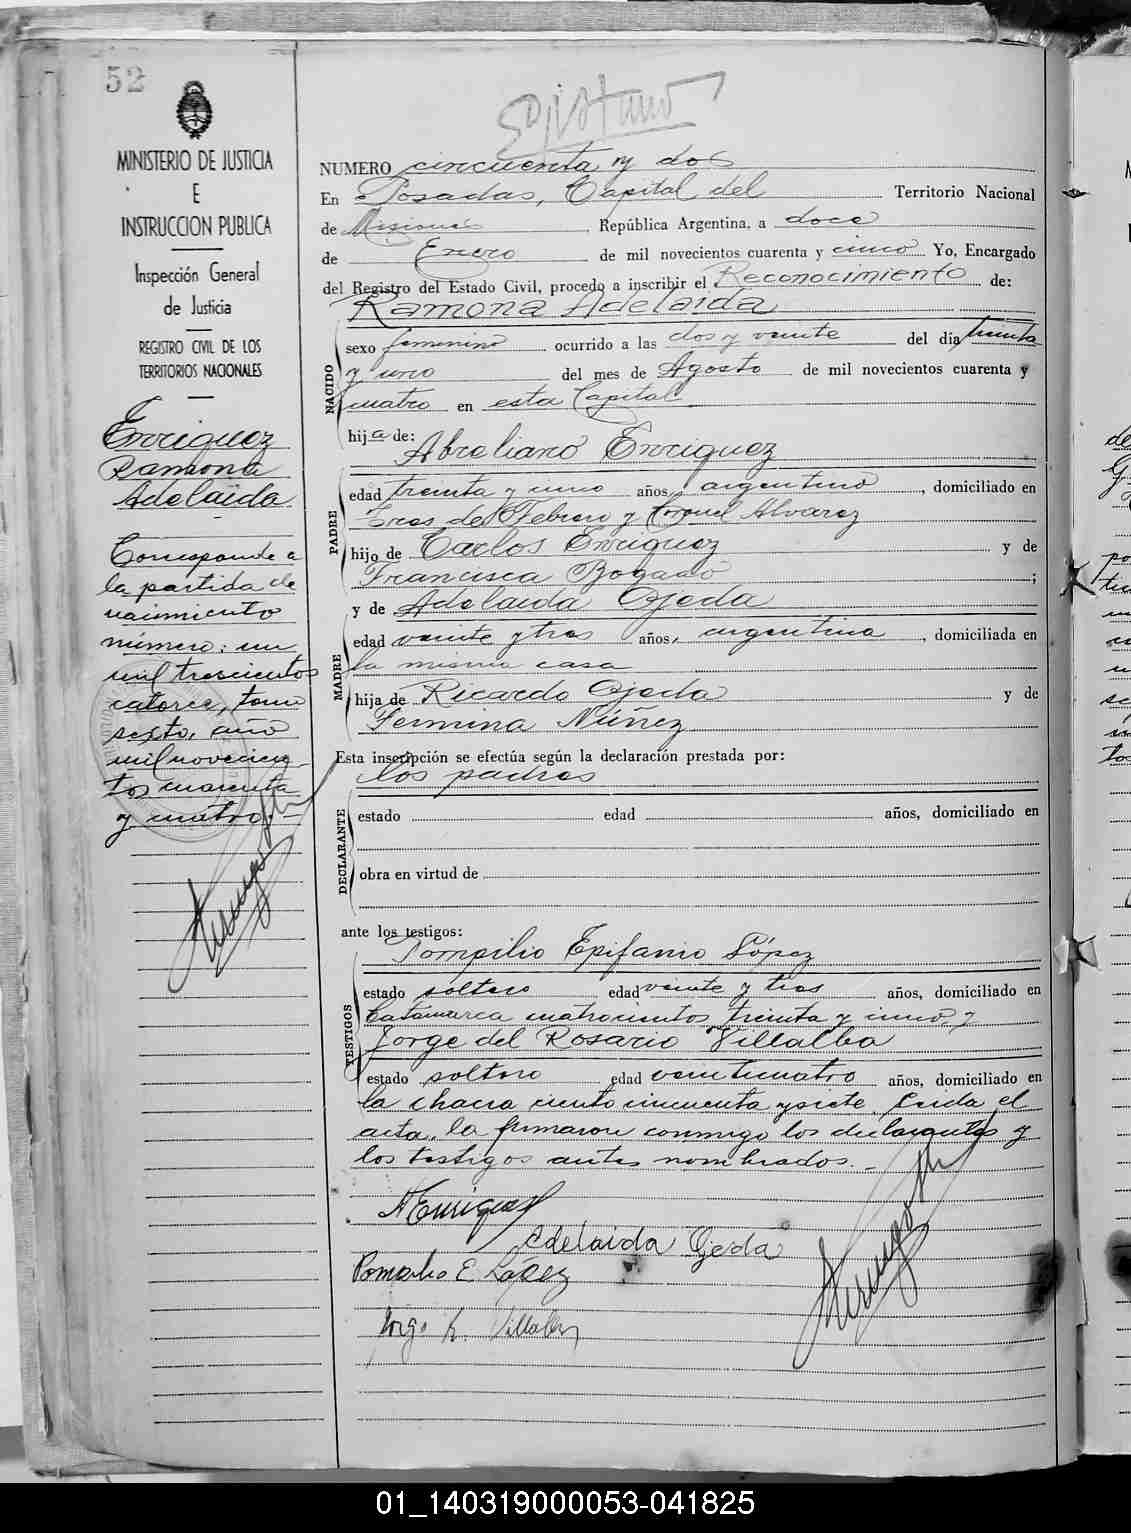 52
MINISTERIO DE JUSTICIA
E
INSTRUCCION PUBLICA
Inspección General
de Justicia
REGISTRO CIVIL DE LOS
TERRITORIOS NACIONALES
Enriquez
Ramona
Adelaida
Corresponde a
la partida de
nacimiento
número: un
mil trescientos
catorce, tomo
sexto, año
mil novecien
tos cuarenta
y cuatro.-
NUMERO cincuenta y dos
En Posadas, Capital del Territorio Nacional
de Misiones República Argentina, a doce
de Enero de mil novecientos cuarenta y cinco Yo, Encargado
del Registro del Estado Civil, procedo a inscribir el Reconocimiento de:
Ramona Adelaida
NACIDO
sexo femenino ocurrido a las dos y veinte del día treinta
y uno del mes de Agosto de mil novecientos cuarenta y
cuatro en esta Capital
hija de: Abreliano Enriquez
PADRE
edad treinta y uno años, argentino, domiciliado en
Tres de Febrero y Coronel Alvarez
hijo de Carlos Enriquez y de
Francisca Bogado;
y de Adelaida Ojeda
MADRE
edad veinte y tres años, argentina, domiciliada en
la misma casa
hija de Ricardo Ojeda y de
Fermina Núñez
Esta inscripción se efectúa según la declaración prestada por:
los padres
DECLARANTE
estado edad años, domiciliado en
obra en virtud de
ante los testigos:
Pompilio Epifanio López
TESTIGOS
estado soltero edad veinte y tres años, domiciliado en
Catamarca cuatrocientos treinta y cinco y
Jorge del Rosario Villalba
estado soltero edad veinticuatro años, domiciliado en
la chacra ciento cincuenta y siete. Leida el
acta, la firmaron conmigo los declarantes y
los testigos antes nombrados.-
AEnriquez
Adelaida Ojeda
Pompilio E. López
Jorge R. Villalba
01_140319000053-041825